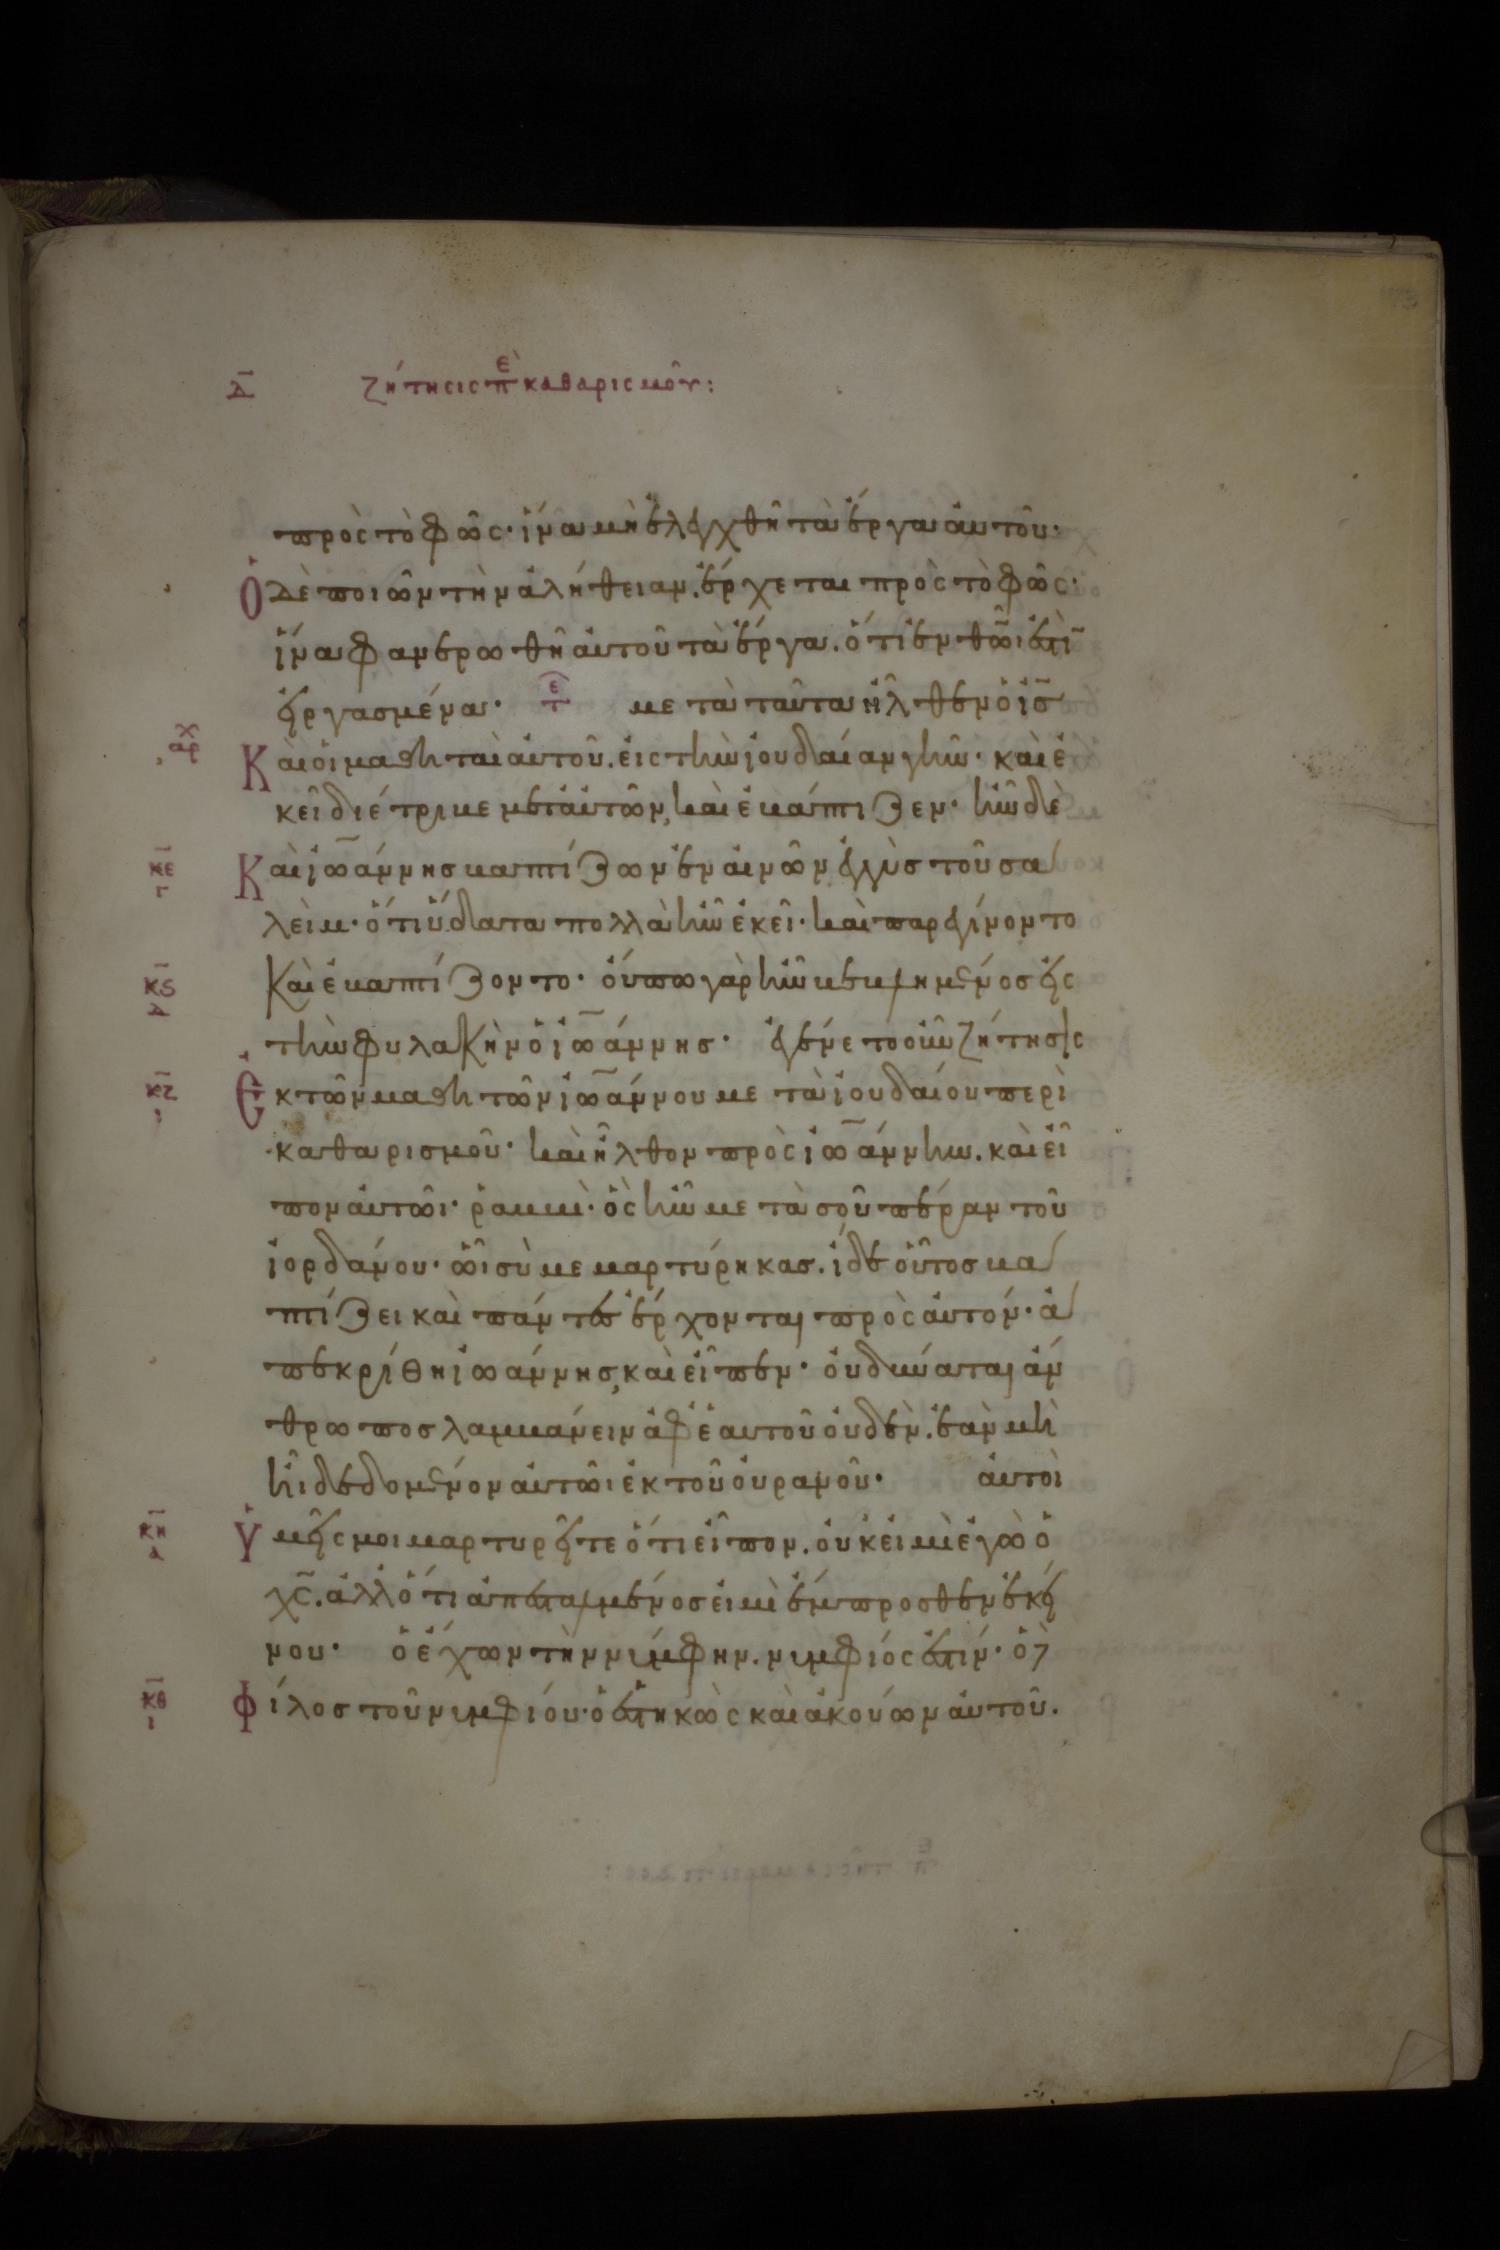 Δ ζήτησις π ε καθαρισμοῦ:
πρὸς τὸ φῶς· ἵνα μὴ ἐλεγχθῆ τὰ ἔργα αὐτοῦ·
Ὁ δὲ ποιῶν τὴν ἀλήθειαν. ἔρχεται πρὸς τὸ φῶς·
ἵνα φανερωθῆ αὐτοῦ τὰ ἔργα. ὅτι ἐν θω̄ι ἐστὶ̄
εἰργασμένα· τε μετὰ ταῦτα ἦλθεν ὁ ις̄
αρχ Καὶ οἱ μαθηταὶ αὐτοῦ. εἰς τὴν ἰουδαίαν γῆν· καὶ ἐ
κεῖ διέτριβε μετ' αὐτῶν, καὶ ἐβάπτιζεν· ἦν δὲ
κε γ Καὶ ἰω̄άννης βαπτίζων ἐν αἰνῶν ἐγγὺς τοῦ σα
λεὶμ· ὅτι ὕδατα πολλὰ ἦν ἐκεῖ· καὶ παρεγίνοντο
κϛ δ καὶ ἐβαπτίζοντο· οὔπω γὰρ ἦν βεβλημένος εἰς
τὴν φυλακὴν ὁ ἰω̄άννης· ἐγένετο οὖν ζήτησις
κζ ι Ἐκ τῶν μαθητῶν ἰω̄άννου μετὰ ἰουδαίου περὶ
καθαρισμοῦ· καὶ ἦλθον πρὸς ἰω̄άννην. καὶ εἶ
πον αὐτῶι· ῥαββὶ· ὃς ἦν μετὰ σοῦ πέραν τοῦ
ἰορδάνου· ὧι σὺ μεμαρτύρηκας. ἴδε οὗτος βα
πτίζει καὶ πάντες ἔρχονται πρὸς αὐτόν· ἀ
πεκρίθη ἰωάννης, καὶ εἶπεν· οὐ δύναται ἄν
θρωπος λαμβάνειν ἀφ' ἑαυτοῦ οὐδὲν. ἐὰν μὴ
ἦι δεδομένον αὐτῶι ἐκ τοῦ οὐρανοῦ· αὐτοὶ
κη α Ὑμεῖς μοι μαρτυρεῖτε ὅτι εἶπον. οὐκ εἰμὶ ἐγὼ ὁ
χς̄. ἀλλ' ὅτι ἀπεσταλμένος εἰμὶ ἔμπροσθεν ἐκεί
νου· ὁ ἔχων τὴν νύμφην. νυμφίος ἐστίν· ὁ δὲ
κθ ι Φίλος τοῦ νυμφίου· ὁ ἑστηκὼς καὶ ἀκούων αὐτοῦ.